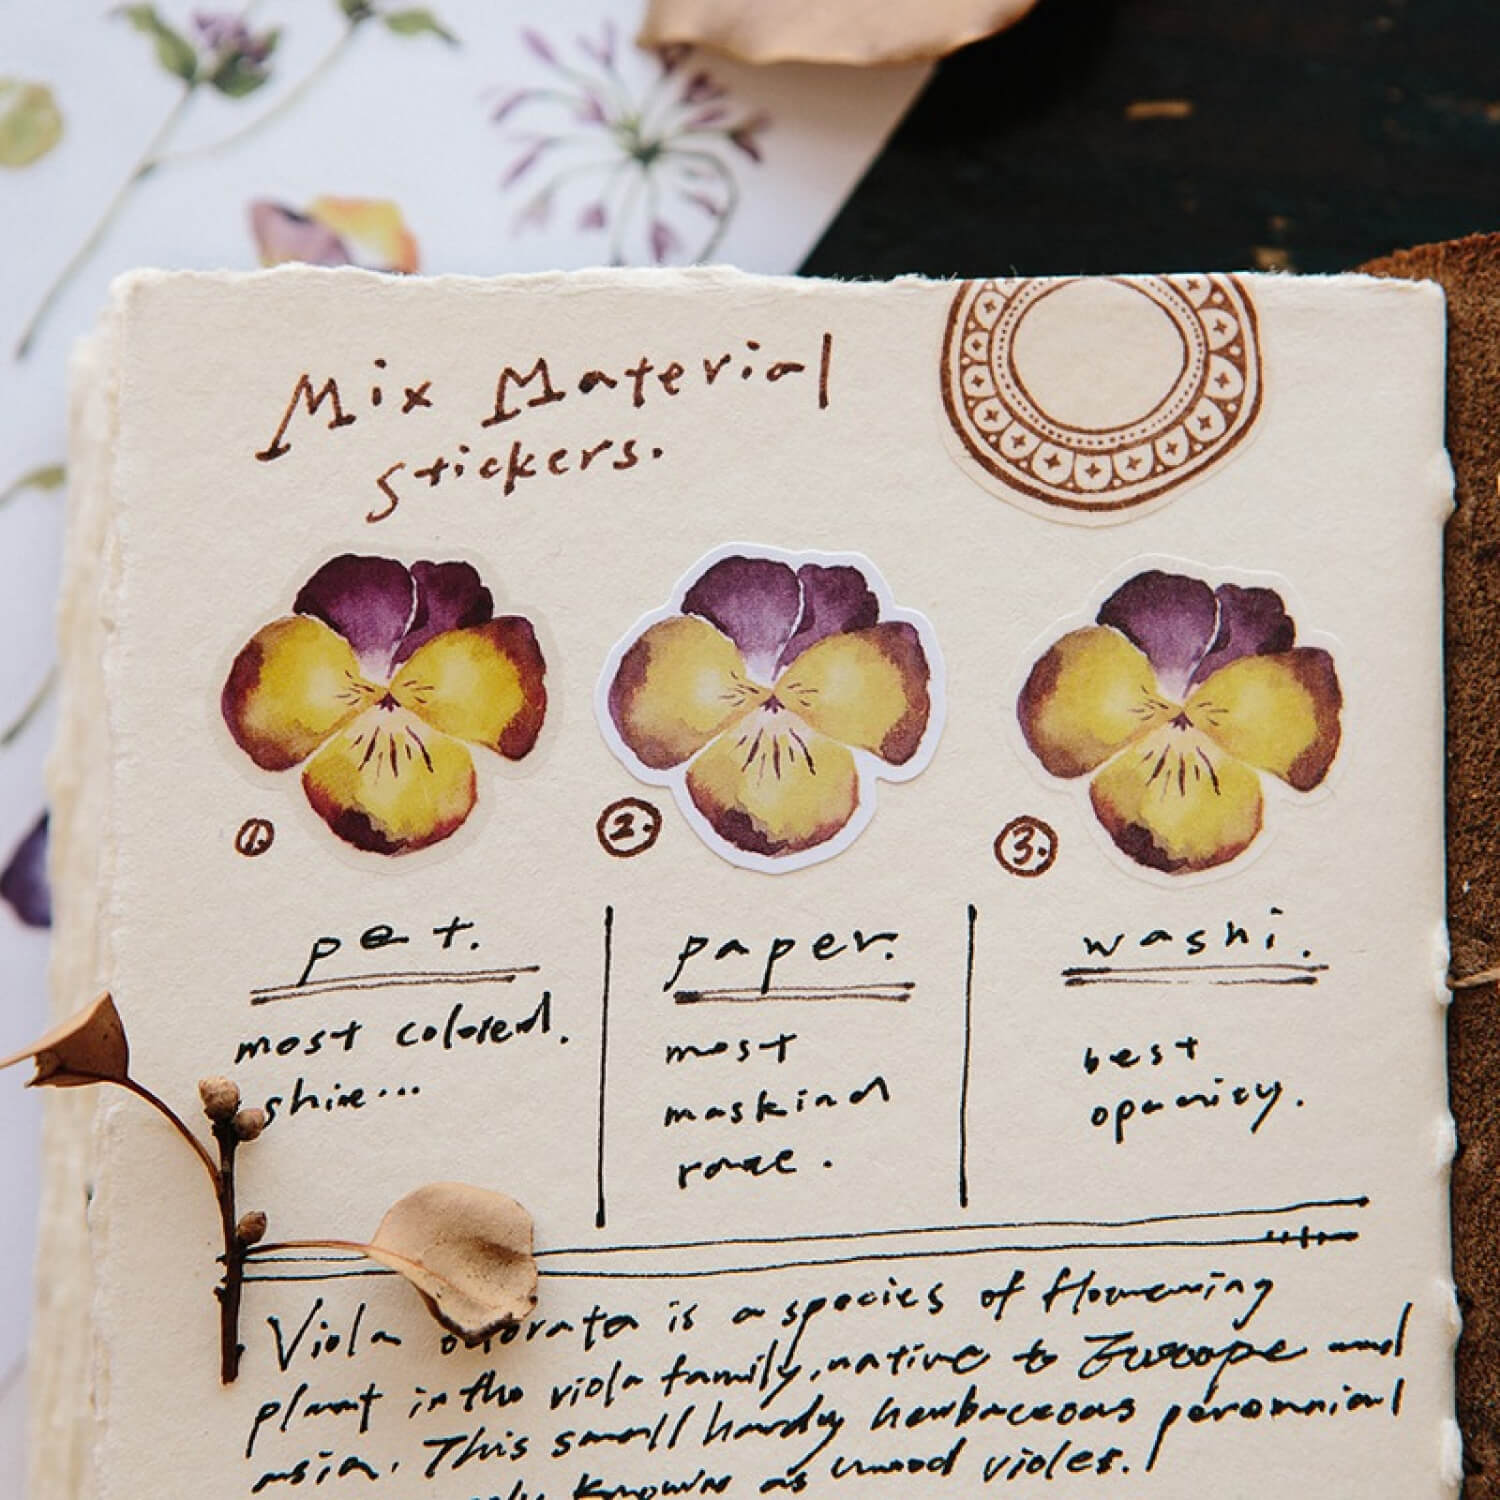 Mix Material
stickers.
1.
2.
3.
pet.
paper.
washi.
most colored.
shine...
most
maskind
best
opacity.
Viola odorata is a species of flowering
plant in the viola family, native to Europe and
asia. This small hardy herbaceous perennial
known as wood violes.